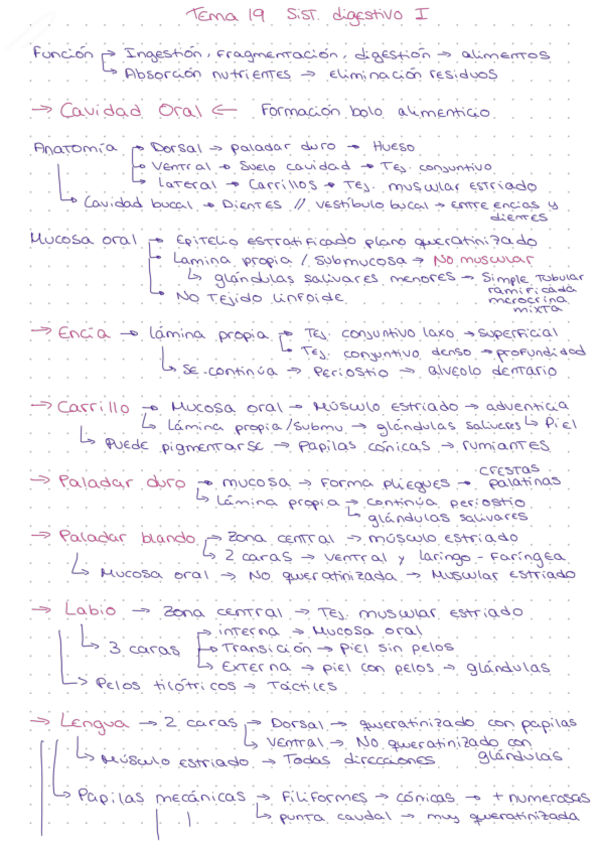 Tema 19 Sist. digestivo I
Función → Ingestión, Fragmentación, digestión → alimentos
↳ Absorción nutrientes → eliminación residuos
→ Cavidad Oral ← Formación bolo alimenticio
Anatomía → Dorsal → paladar duro → Hueso
→ Ventral → Suelo cavidad → Tej. conjuntivo
↳ Lateral → Carrillos → Tej. muscular estriado
↳ Cavidad bucal → Dientes // Vestíbulo bucal → entre encías y
dientes
Mucosa oral → Epitelio estratificado plano queratinizado
→ Lamina propia / Submucosa → No muscular
↳ glándulas salivares menores → Simple Tubular
ramificada
merocrina
mixta
→ No Tejido linfoide
→ Encía → lámina propia → Tej. conjuntivo laxo → superficial
↳ Tej. conjuntivo denso → profundidad
↳ Se continúa → Periostio → alveolo dentario
→ Carrillo → Mucosa oral → Músculo estriado → adventicia
↳ Lámina propia/submu. → glándulas salivares ↳ Piel
↳ Puede pigmentarse → Papilas cónicas → rumiantes
→ Paladar duro → mucosa → Forma pliegues → crestas
palatinas
↳ Lámina propia → continúa periostio
↳ glándulas salivares
→ Paladar blando → Zona central → músculo estriado
↳ 2 caras → Ventral y laringo - Faríngea
↳ Mucosa oral → No queratinizada → Muscular estriado
→ Labio → Zona central → Tej. muscular estriado
↳ 3 caras → interna → Mucosa oral
→ Transición → Piel sin pelos
↳ Externa → piel con pelos → glándulas
↳ Pelos tilótricos → Táctiles
→ Lengua → 2 caras → Dorsal → queratinizado con papilas
↳ Ventral → No queratinizado con
glándulas
↳ Músculo estriado → Todas direcciones
↳ Papilas mecánicas → Filiformes → cónicas → + numerosas
↳ punta caudal → muy queratinizada